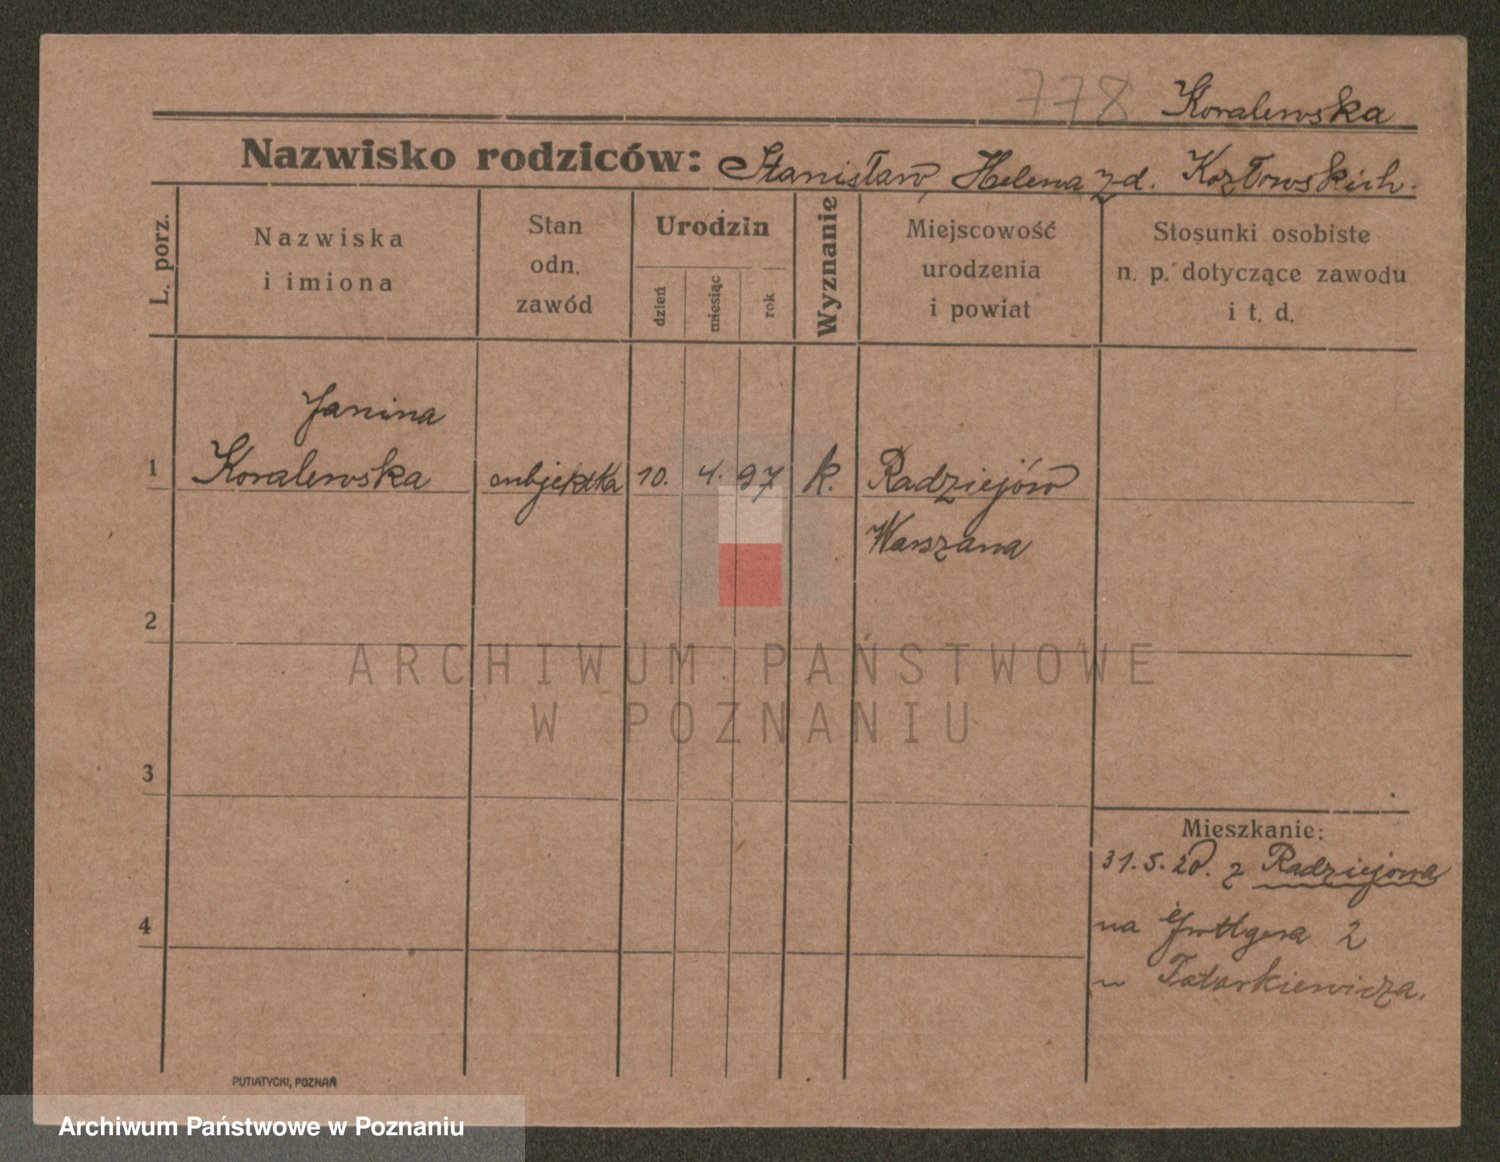 778 Kowalewska
Nazwisko rodziców: Stanisław, Helena z d. Kozłowskich.
L. porz.
Nazwiska
i imiona
Stan
odn.
zawód
Urodzin
dzień
miesiąc
rok
Wyznanie
Miejscowość
urodzenia
i powiat
Stosunki osobiste
n. p. dotyczące zawodu
i t. d.
Janina
1 Kowalewska subjektka 10. 4. 97 k. Radziejów
Warszawa
2
ARCHIWUM PAŃSTWOWE
W POZNANIU
3
Mieszkanie:
31.5.20. z Radziejowa
4
na Grottgera 2
u Tatarkiewicza.
PUTIATYCKI, POZNAŃ
Archiwum Państwowe w Poznaniu